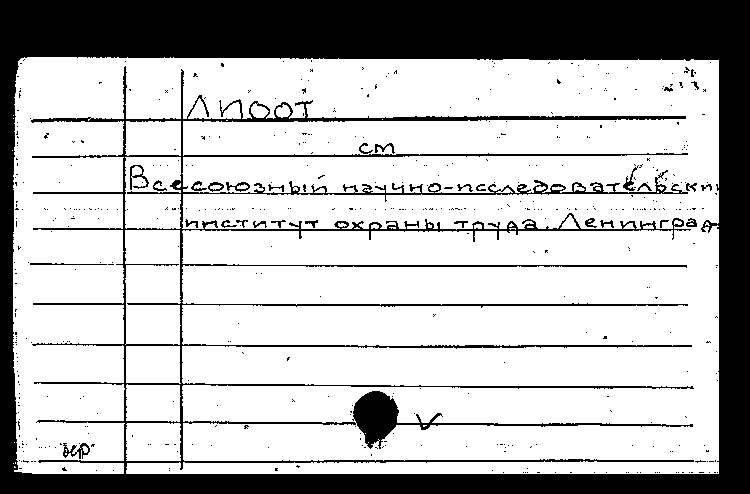 ЛИООТ
см
Всесоюзный научно-исследовательский
институт охраны труда. Ленинград